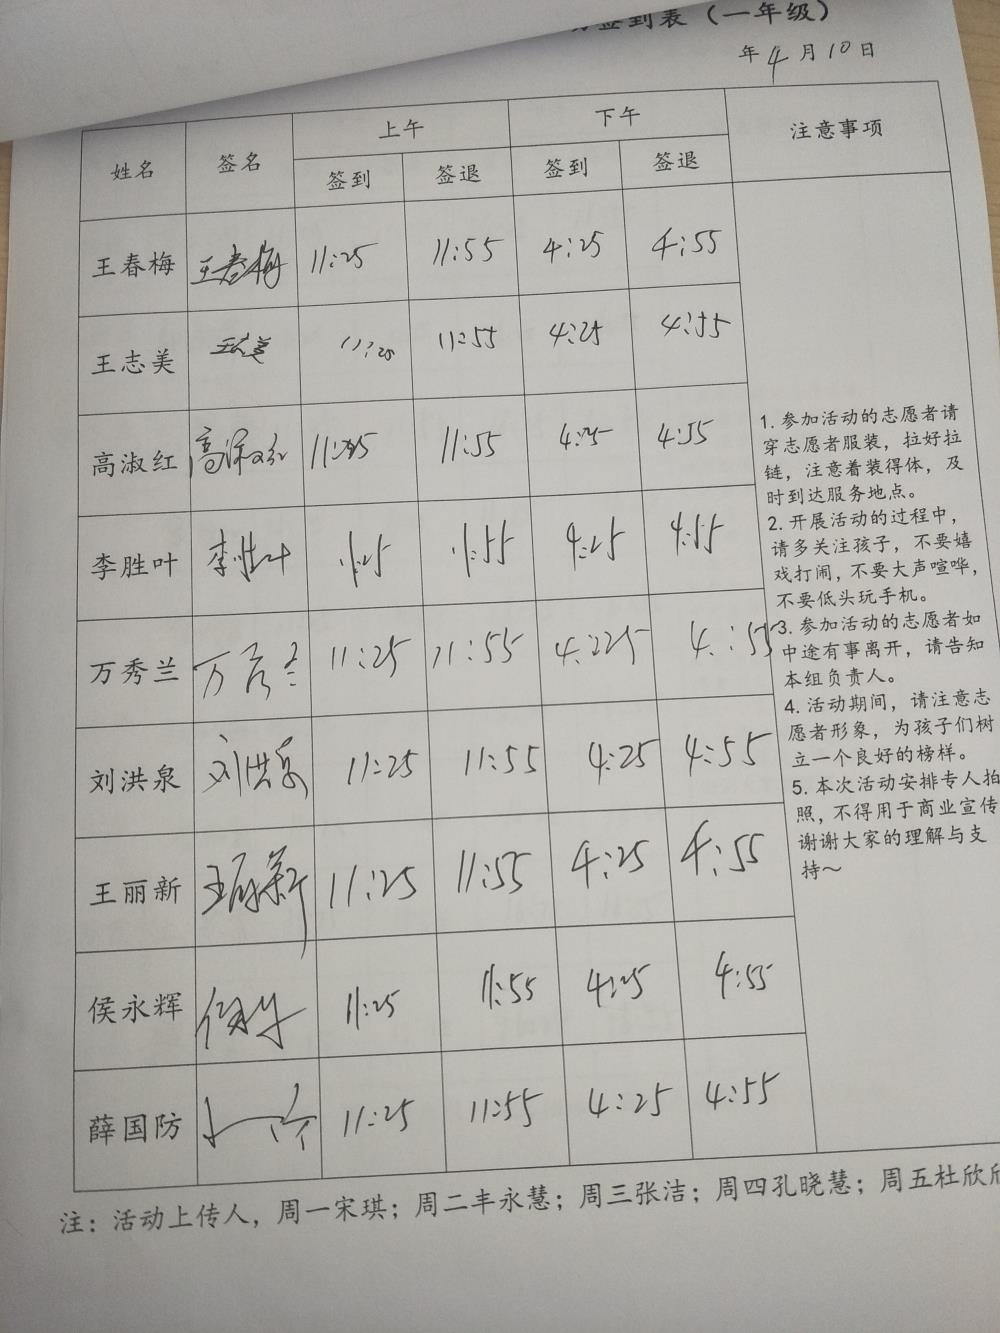 签到表（一年级）
年 4 月 10 日
姓名 签名 上午 下午 注意事项
签到 签退 签到 签退
王春梅 王春梅 11:25 11:55 4:25 4:55
王志美 王志美 11:25 11:55 4:25 4:55
高淑红 高淑红 11:25 11:55 4:25 4:55
李胜叶 李胜叶 11:25 11:55 4:25 4:55
万秀兰 万秀兰 11:25 11:55 4:225 4:55
刘洪泉 刘洪泉 11:25 11:55 4:25 4:55
王丽新 王丽新 11:25 11:55 4:25 4:55
侯永辉 11:25 11:55 4:25 4:55
薛国防 11:25 11:55 4:25 4:55
1. 参加活动的志愿者请
穿志愿者服装，拉好拉
链，注意着装得体，及
时到达服务地点。
2. 开展活动的过程中，
请多关注孩子，不要嬉
戏打闹，不要大声喧哗，
不要低头玩手机。
3. 参加活动的志愿者如
中途有事离开，请告知
本组负责人。
4. 活动期间，请注意志
愿者形象，为孩子们树
立一个良好的榜样。
5. 本次活动安排专人拍
照，不得用于商业宣传
谢谢大家的理解与支
持～
注：活动上传人，周一宋琪；周二丰永慧；周三张洁；周四孔晓慧；周五杜欣欣